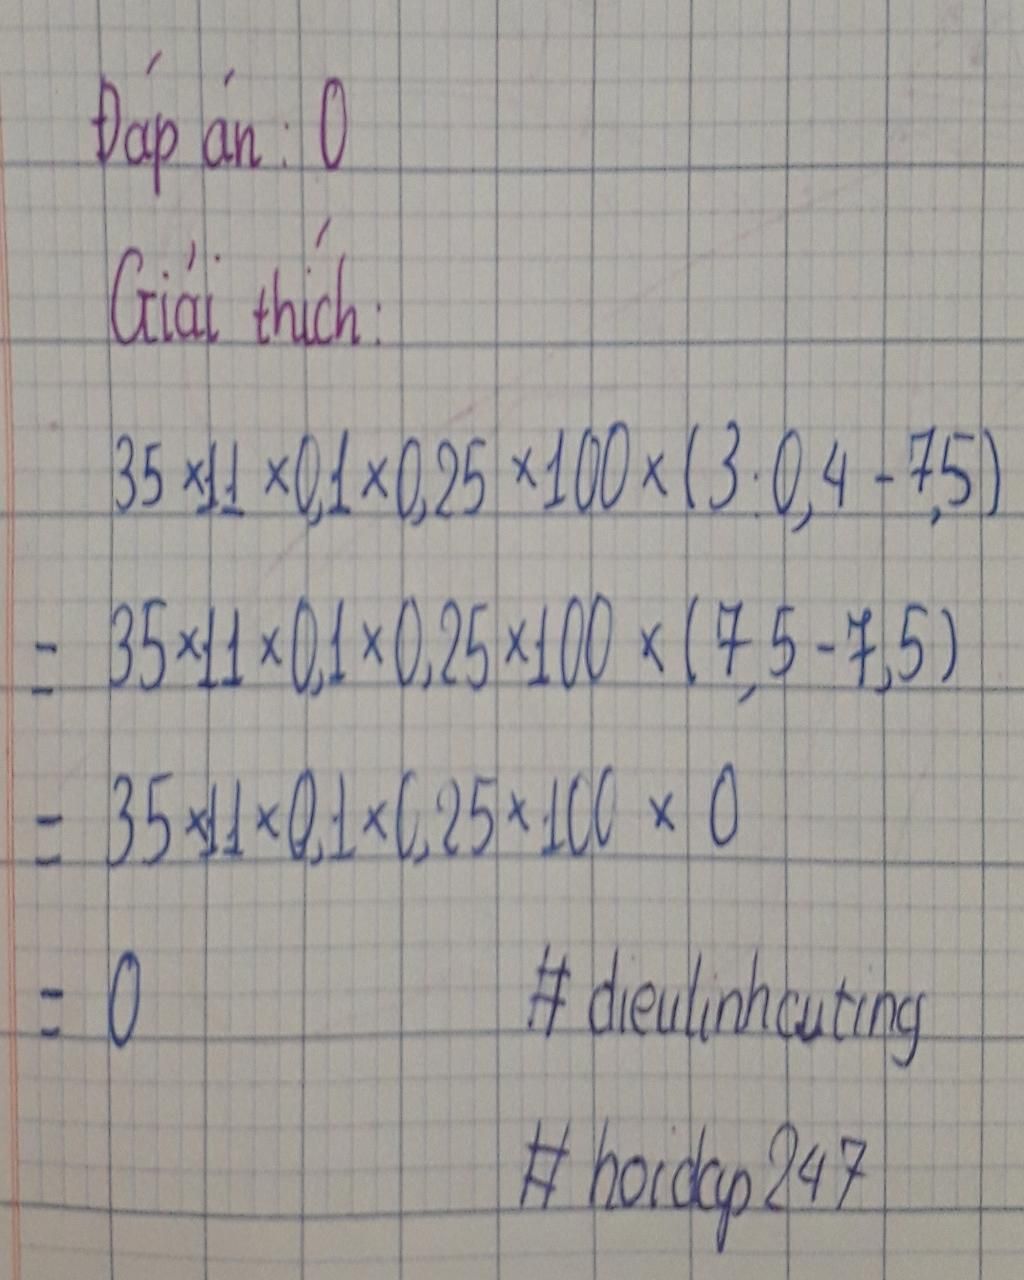 Đáp án: 0
Giải thích:
35 × 11 × 0,1 × 0,25 × 100 × (3 : 0,4 - 7,5)
= 35 × 11 × 0,1 × 0,25 × 100 × (7,5 - 7,5)
= 35 × 11 × 0,1 × 0,25 × 100 × 0
= 0 # dieulinhcuting
# hoidap247